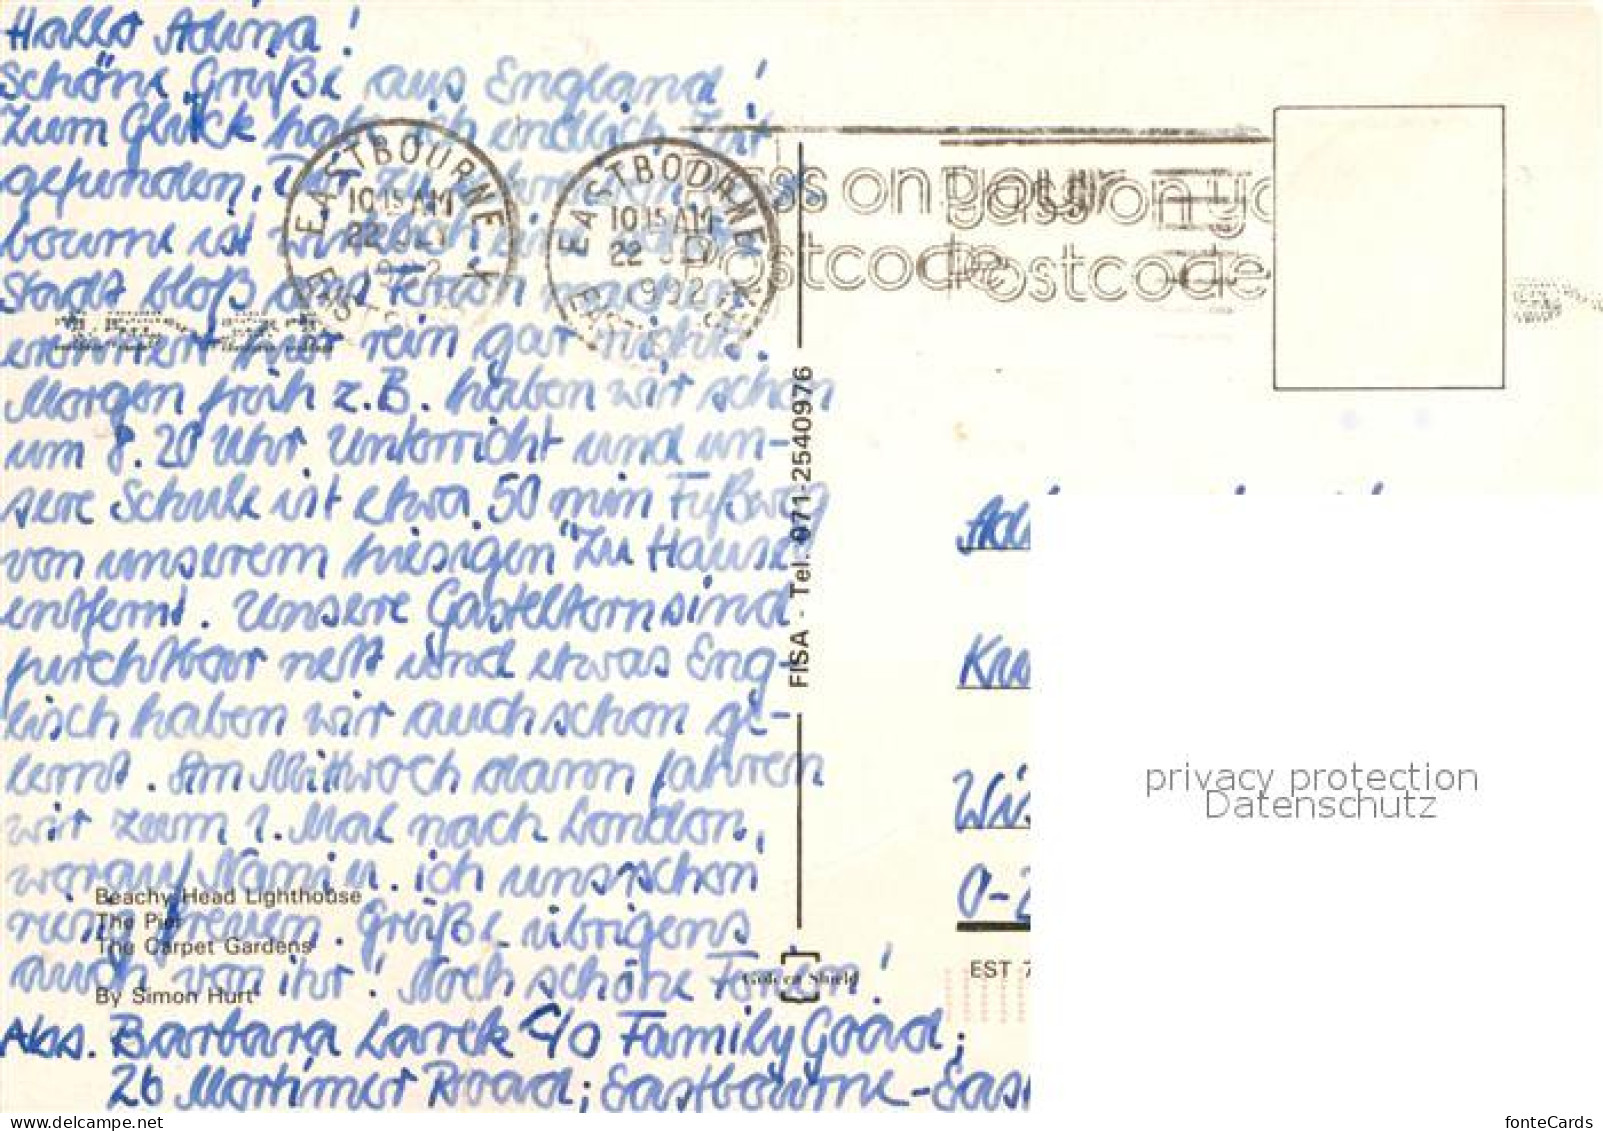 Hallo Adina!
Schöne Grüße aus England!
Zum Glück hab ich endlich Zeit
gefunden, Dir zu schreiben. East-
bourne ist wirklich eine
Stadt bloß das Toron machen
erinnert hier rein gar nichts.
Morgen früh z.B. haben wir schon
um 8.20 Uhr Unterricht und un-
sere Schule ist etwa 50 min Fußweg
von unserem hiesigen "Zu Hause"
entfernt. Unsere Gasteltern sind
furchtbar nett und etwas Eng-
lisch haben wir auch schon ge-
lernt. Am Mittwoch dann fahren
wir zum 1. Mal nach London,
worauf Nami u. ich uns schon
rum freuen. Grüße übrigens
auch von ihr! Noch schöne Ferien!
Abs. Barbara Larek C/o Family Goad;
26 Mortimer Road; Eastbourne-East
EASTBOURNE
10 15 AM
22 JLY
1992
E. SUSSEX
EASTBOURNE
10 15 AM
22 JLY
1992
Pass on your
Postcode
Pass on yo
Postcode
FISA - Tel. 0711-2540976
Beachy Head Lighthouse
The Pier
The Carpet Gardens
By Simon Hurt
Golden Shield
Ad
Kru
Wis
O-2
EST 7
privacy protection
Datenschutz
www.delcampe.net
fonteCards